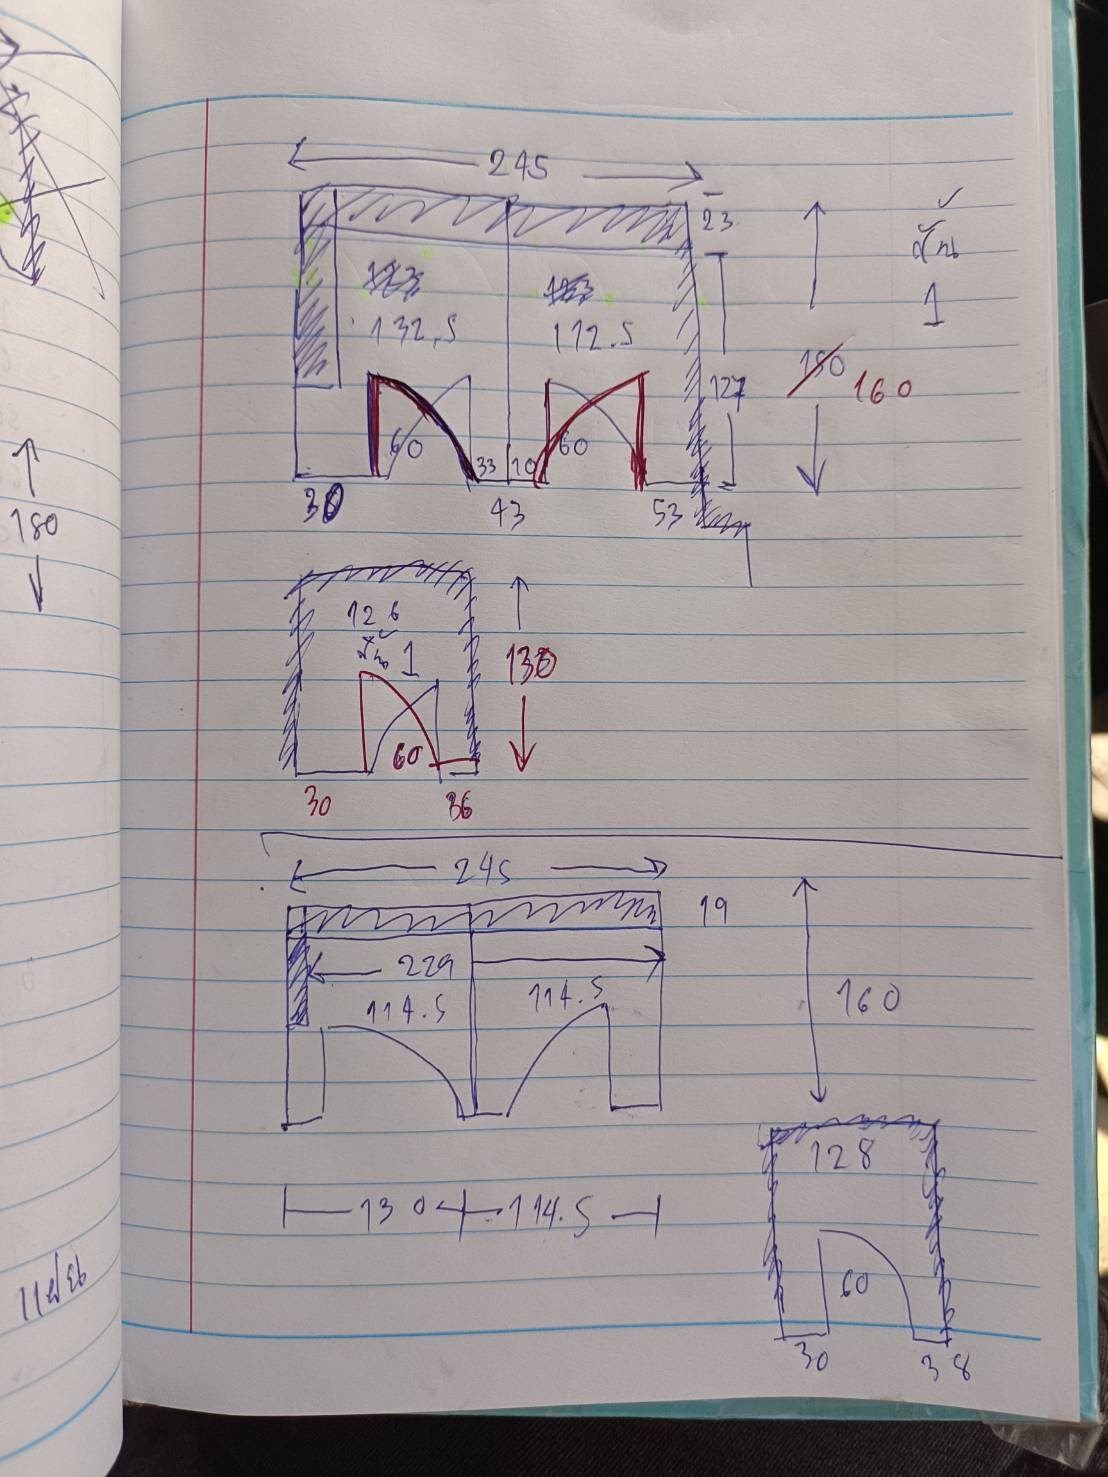 245
23
ชั้น
1
132.5
112.5
127
150 160
60
33
10
60
30
43
53
180
126
ชั้น 1
130
60
30
36
245
19
229
114.5
114.5
160
130
114.5
128
60
30
38